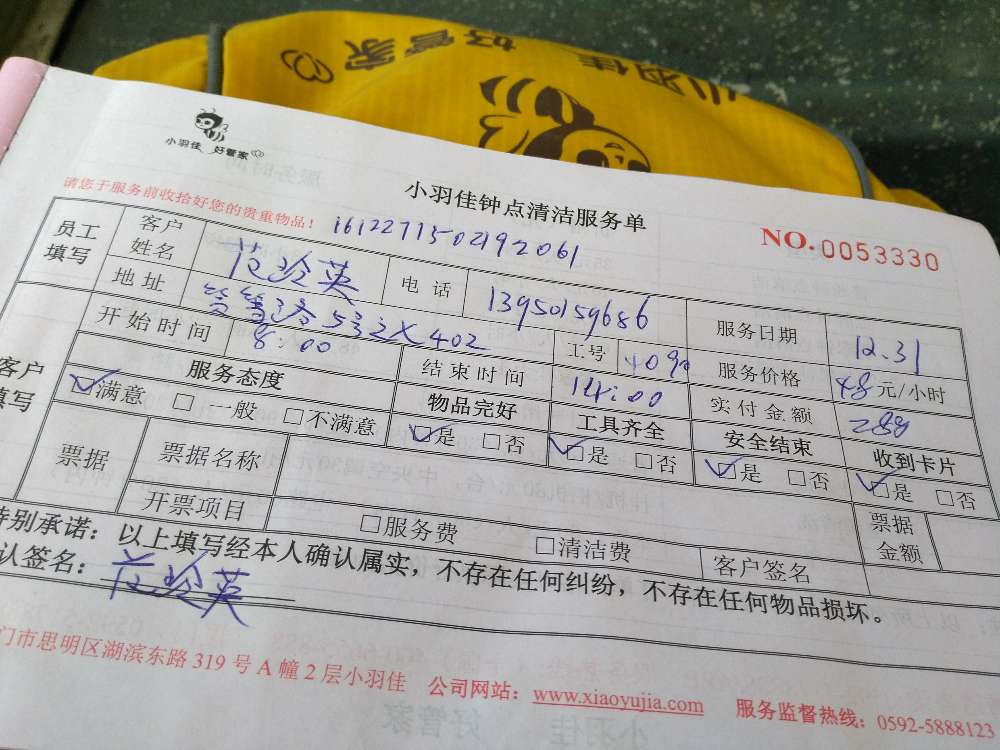 小羽佳 好管家
小羽佳 好管家
小羽佳钟点清洁服务单
请您于服务前收拾好您的贵重物品！ 16122711502192061
NO.0053330
员工填写 客户姓名 玲英 电话 13950159686 服务日期 12.31
地址 532 402 工号 4090 服务价格 48元/小时
客户填写 开始时间 8:00 结束时间 14:00 实付金额 288
服务态度 物品完好 工具齐全 安全结束 收到卡片
☑满意 □一般 □不满意 ☑是 □否 ☑是 □否 ☑是 □否 ☑是 □否
票据 票据名称 票据金额
开票项目 □服务费 □清洁费 客户签名
特别承诺：以上填写经本人确认属实，不存在任何纠纷，不存在任何物品损坏。
认签名： 玲英
门市思明区湖滨东路 319 号 A 幢 2 层小羽佳 公司网站：www.xiaoyujia.com 服务监督热线：0592-5888123